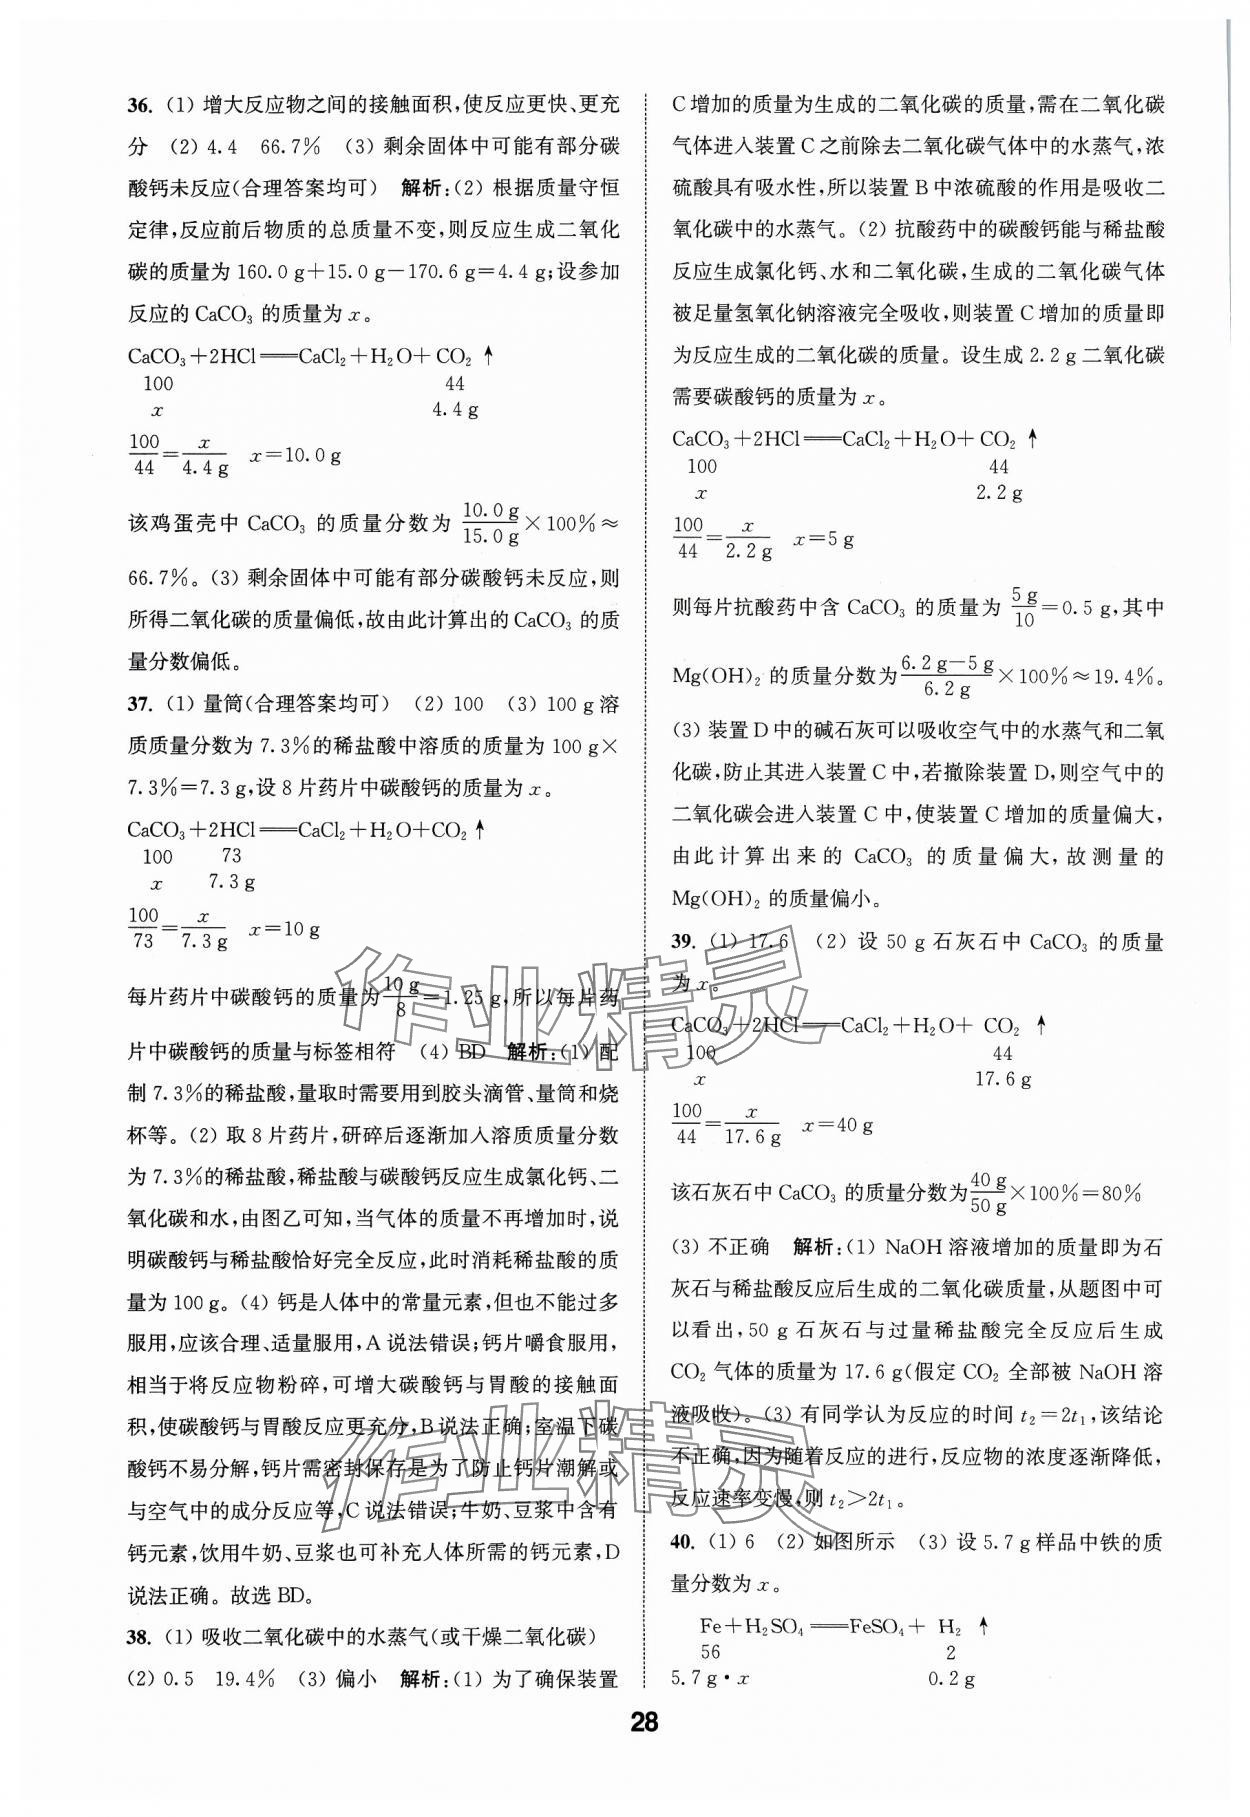 36. (1) 增大反应物之间的接触面积,使反应更快、更充
分 (2) 4.4 66.7% (3) 剩余固体中可能有部分碳
酸钙未反应(合理答案均可) 解析:(2) 根据质量守恒
定律,反应前后物质的总质量不变,则反应生成二氧化
碳的质量为 160.0 g+15.0 g−170.6 g=4.4 g;设参加
反应的 CaCO₃ 的质量为 x。
CaCO₃+2HCl══CaCl₂+H₂O+CO₂↑
100 44
x 4.4 g
100/44=x/4.4 g x=10.0 g
该鸡蛋壳中 CaCO₃ 的质量分数为 10.0 g/15.0 g×100%≈
66.7%。(3) 剩余固体中可能有部分碳酸钙未反应,则
所得二氧化碳的质量偏低,故由此计算出的 CaCO₃ 的质
量分数偏低。
37. (1) 量筒(合理答案均可) (2) 100 (3) 100 g 溶
质质量分数为 7.3%的稀盐酸中溶质的质量为 100 g×
7.3%=7.3 g,设 8 片药片中碳酸钙的质量为 x。
CaCO₃+2HCl══CaCl₂+H₂O+CO₂↑
100 73
x 7.3 g
100/73=x/7.3 g x=10 g
每片药片中碳酸钙的质量为10 g/8=1.25 g,所以每片药
片中碳酸钙的质量与标签相符 (4) BD 解析:(1) 配
制 7.3%的稀盐酸,量取时需要用到胶头滴管、量筒和烧
杯等。(2) 取 8 片药片,研碎后逐渐加入溶质质量分数
为 7.3%的稀盐酸,稀盐酸与碳酸钙反应生成氯化钙、二
氧化碳和水,由图乙可知,当气体的质量不再增加时,说
明碳酸钙与稀盐酸恰好完全反应,此时消耗稀盐酸的质
量为 100 g。(4) 钙是人体中的常量元素,但也不能过多
服用,应该合理、适量服用,A 说法错误;钙片嚼食服用,
相当于将反应物粉碎,可增大碳酸钙与胃酸的接触面
积,使碳酸钙与胃酸反应更充分,B 说法正确;室温下碳
酸钙不易分解,钙片需密封保存是为了防止钙片潮解或
与空气中的成分反应等,C 说法错误;牛奶、豆浆中含有
钙元素,饮用牛奶、豆浆也可补充人体所需的钙元素,D
说法正确。故选 BD。
38. (1) 吸收二氧化碳中的水蒸气(或干燥二氧化碳)
(2) 0.5 19.4% (3) 偏小 解析:(1) 为了确保装置
C 增加的质量为生成的二氧化碳的质量,需在二氧化碳
气体进入装置 C 之前除去二氧化碳气体中的水蒸气,浓
硫酸具有吸水性,所以装置 B 中浓硫酸的作用是吸收二
氧化碳中的水蒸气。(2) 抗酸药中的碳酸钙能与稀盐酸
反应生成氯化钙、水和二氧化碳,生成的二氧化碳气体
被足量氢氧化钠溶液完全吸收,则装置 C 增加的质量即
为反应生成的二氧化碳的质量。设生成 2.2 g 二氧化碳
需要碳酸钙的质量为 x。
CaCO₃+2HCl══CaCl₂+H₂O+CO₂↑
100 44
x 2.2 g
100/44=x/2.2 g x=5 g
则每片抗酸药中含 CaCO₃ 的质量为 5 g/10=0.5 g,其中
Mg(OH)₂ 的质量分数为6.2 g−5 g/6.2 g×100%≈19.4%。
(3) 装置 D 中的碱石灰可以吸收空气中的水蒸气和二氧
化碳,防止其进入装置 C 中,若撤除装置 D,则空气中的
二氧化碳会进入装置 C 中,使装置 C 增加的质量偏大,
由此计算出来的 CaCO₃ 的质量偏大,故测量的
Mg(OH)₂ 的质量偏小。
39. (1) 17.6 (2) 设 50 g 石灰石中 CaCO₃ 的质量
为 x。
CaCO₃+2HCl══CaCl₂+H₂O+ CO₂ ↑
100 44
x 17.6 g
100/44=x/17.6 g x=40 g
该石灰石中 CaCO₃ 的质量分数为40 g/50 g×100%=80%
(3) 不正确 解析:(1) NaOH 溶液增加的质量即为石
灰石与稀盐酸反应后生成的二氧化碳质量,从题图中可
以看出,50 g 石灰石与过量稀盐酸完全反应后生成
CO₂ 气体的质量为 17.6 g(假定 CO₂ 全部被 NaOH 溶
液吸收)。(3) 有同学认为反应的时间 t₂=2t₁,该结论
不正确,因为随着反应的进行,反应物的浓度逐渐降低,
反应速率变慢,则 t₂>2t₁。
40. (1) 6 (2) 如图所示 (3) 设 5.7 g 样品中铁的质
量分数为 x。
Fe+H₂SO₄══FeSO₄+ H₂ ↑
56 2
5.7 g·x 0.2 g
28
作业精灵
作业精灵